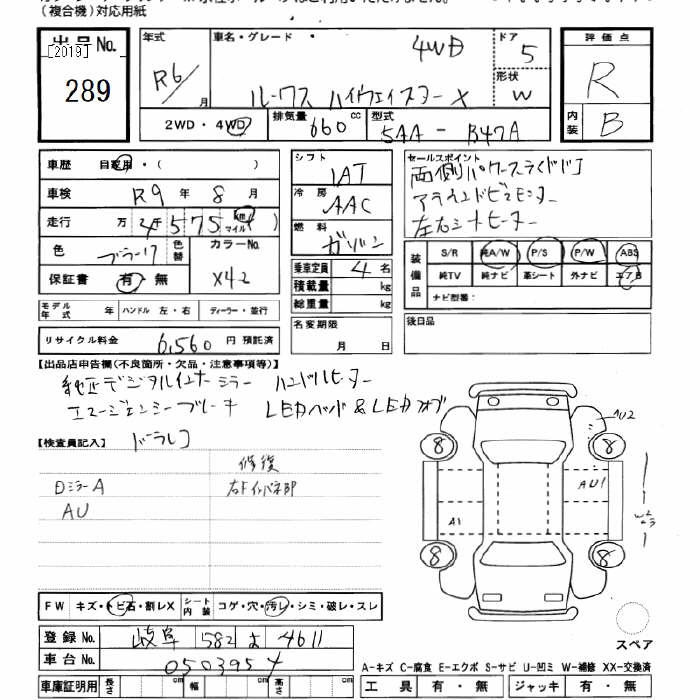 (複合機)対応用紙
出品No. [2019] 289
年式 R6/ 月
車名・グレード・ 4WD
ルークス ハイウェイスターX
ドア 5
形状 W
評価点 R
内装 B
2WD・4WD 排気量 660 cc 型式 5AA-B47A
車歴 自家用・( )
車検 R9 年 8 月
走行 万 千 575 km マイル ( )
色 ブラック 色替 カラーNo. X42
保証書 有・無
シフト IAT
冷房 AAC
燃料 ガソリン
乗車定員 4 名
積載量 kg
総重量 kg
セールスポイント
両側パワースライドドア
アラウンドビューモニター
左右シートヒーター
装備品 S/R 純A/W P/S P/W ABS
純TV 純ナビ 革シート 外ナビ エアB
ナビ型番:
モデル年式 年 ハンドル 左・右 ディーラー・並行
名変期限 月 日
後日品
リサイクル料金 6,560 円 預託済
【出品店申告欄(不良箇所・欠品・注意事項等)】
純正デジタルインナーミラー ハンドルヒーター
エマージェンシーブレーキ LEDヘッド&LEDフォグ
ドラレコ
【検査員記入】
修復
DミラーA 右Fインパネ部
AU
AU2
8 8
AU1
A1
8 8
FW キズ・トビ石・割レX シート内装 コゲ・穴・汚レ・シミ・破レ・スレ
スペア
登録No. 岐阜 582 よ 4611
車台No. 0503954
A-キズ C-腐食 E-エクボ S-サビ U-凹ミ W-補修 XX-交換済
車庫証明用 長さ cm 幅 cm 高さ cm 工具 有・無 ジャッキ 有・無